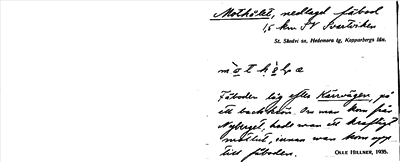 Mothület, nedlagd fäbod
1,5 km SV Svartviken
St. Skedvi sn, Hedemora tg, Kopparbergs län.
Fäboden låg efter Kärrvägen, på
ett backkrön. Om man kom från
Nyberget, hade man ett kraftigt
motlut, innan man kom upp
till fäboden.
OLLE HILLNER, 1935.